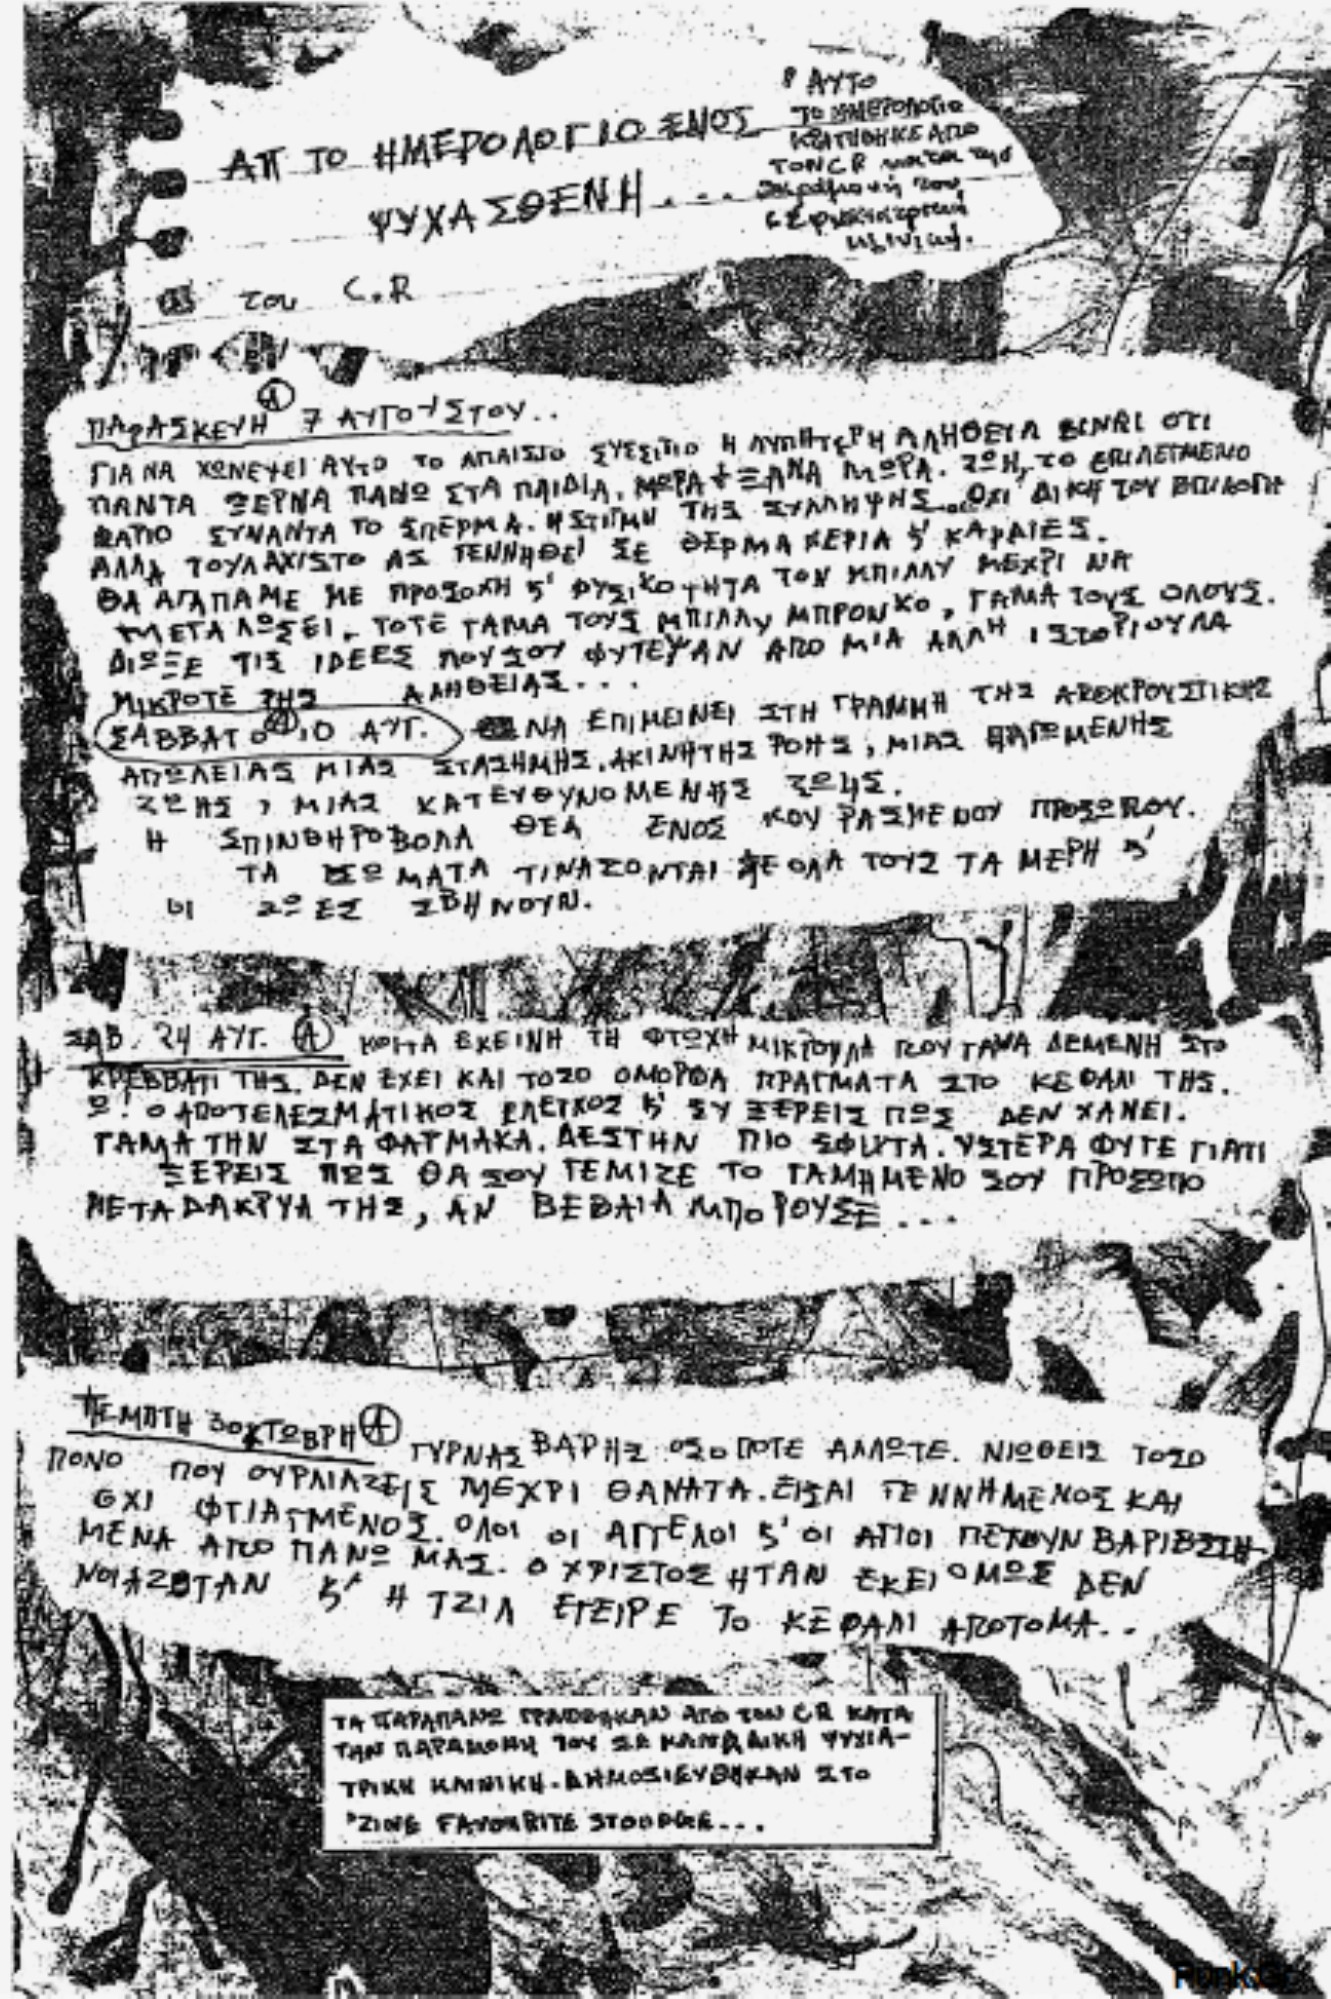 ΑΠ ΤΟ ΗΜΕΡΟΛΟΓΙΟ ΕΝΟΣ
ΨΥΧΑΣΘΕΝΗ...
του C.R
ΑΥΤΟ
ΤΟ ΗΜΕΡΟΛΟΓΙΟ
ΚΡΑΤΗΘΗΚΕ ΑΠΟ
ΤΟΝ C.R κατα την
παραμονή του
σε ψυχιατρική
κλινική.
ΠΑΡΑΣΚΕΥΗ Ⓐ 7 ΑΥΓΟΥΣΤΟΥ..
ΓΙΑ ΝΑ ΧΩΝΕΨΕΙ ΑΥΤΟ ΤΟ ΑΠΑΙΣΙΟ ΣΥΣΣΙΤΙΟ Η ΛΥΠΗΤΕΡΗ ΑΛΗΘΕΙΑ ΕΙΝΑΙ ΟΤΙ
ΠΑΝΤΑ ΞΕΡΝΑ ΠΑΝΩ ΣΤΑ ΠΑΙΔΙΑ. ΜΩΡΑ + ΞΑΝΑ ΜΩΡΑ. ΖΩΗ, ΤΟ ΕΠΙΛΕΓΜΕΝΟ
ΩΑΡΙΟ ΣΥΝΑΝΤΑ ΤΟ ΣΠΕΡΜΑ. Η ΣΤΙΓΜΗ ΤΗΣ ΣΥΛΛΗΨΗΣ...ΟΧΙ ΔΙΚΗ ΤΟΥ ΕΠΙΛΟΓΗ
ΑΛΛΑ ΤΟΥΛΑΧΙΣΤΟ ΑΣ ΓΕΝΝΗΘΕΙ ΣΕ ΘΕΡΜΑ ΧΕΡΙΑ Ϛ' ΚΑΡΔΙΕΣ.
ΘΑ ΑΓΑΠΑΜΕ ΜΕ ΠΡΟΣΟΧΗ Ϛ' ΦΥΣΙΚΟΤΗΤΑ ΤΟΝ ΜΠΙΛΛΥ ΜΕΧΡΙ ΝΑ
ΜΕΓΑΛΩΣΕΙ. ΤΟΤΕ ΓΑΜΑ ΤΟΥΣ ΜΠΙΛΛΥ ΜΠΡΟΝΚΟ, ΓΑΜΑ ΤΟΥΣ ΟΛΟΥΣ.
ΔΙΩΞΕ ΤΙΣ ΙΔΕΕΣ ΠΟΥ ΣΟΥ ΦΥΤΕΨΑΝ ΑΠΟ ΜΙΑ ΑΛΛΗ ΙΣΤΟΡΙΟΥΛΑ
ΑΛΗΘΕΙΑΣ...
ΣΑΒΒΑΤΟ Ⓐ 10 ΑΥΓ. ΝΑ ΕΠΙΜΕΙΝΕΙ ΣΤΗ ΓΡΑΜΜΗ ΤΗΣ ΑΠΟΚΡΟΥΣΤΙΚΗΣ
ΑΠΩΛΕΙΑΣ ΜΙΑΣ ΣΤΑΣΗΜΗΣ. ΑΚΙΝΗΤΗΣ ΡΟΗΣ, ΜΙΑΣ ΠΑΓΩΜΕΝΗΣ
ΖΩΗΣ, ΜΙΑΣ ΚΑΤΕΥΘΥΝΟΜΕΝΗΣ ΖΩΗΣ.
Η ΣΠΙΝΘΗΡΟΒΟΛΑ ΘΕΑ ΕΝΟΣ ΚΟΥΡΑΣΜΕΝΟΥ ΠΡΟΣΩΠΟΥ.
ΤΑ ΣΩΜΑΤΑ ΤΙΝΑΖΟΝΤΑΙ ΣΕ ΟΛΑ ΤΟΥΣ ΤΑ ΜΕΡΗ Ϛ'
ΟΙ ΖΩΕΣ ΣΒΗΝΟΥΝ.
ΣΑΒ. 24 ΑΥΓ. Ⓐ ΚΟΙΤΑ ΕΚΕΙΝΗ ΤΗ ΦΤΩΧΗ ΜΙΚΡΟΥΛΑ ΠΟΥ ΓΑΜΑ ΔΕΜΕΝΗ ΣΤΟ
ΚΡΕΒΒΑΤΙ ΤΗΣ. ΔΕΝ ΕΧΕΙ ΚΑΙ ΤΟΣΟ ΟΜΟΡΦΑ ΠΡΑΓΜΑΤΑ ΣΤΟ ΚΕΦΑΛΙ ΤΗΣ.
Ω! Ο ΑΠΟΤΕΛΕΣΜΑΤΙΚΟΣ ΕΛΕΓΧΟΣ Ϛ' ΣΥ ΞΕΡΕΙΣ ΠΩΣ ΔΕΝ ΧΑΝΕΙ.
ΓΑΜΑ ΤΗΝ ΣΤΑ ΦΑΡΜΑΚΑ. ΔΕΣΤΗΝ ΠΙΟ ΣΦΙΧΤΑ. ΥΣΤΕΡΑ ΦΥΓΕ ΓΙΑΤΙ
ΞΕΡΕΙΣ ΠΩΣ ΘΑ ΣΟΥ ΓΕΜΙΖΕ ΤΟ ΓΑΜΗΜΕΝΟ ΣΟΥ ΠΡΟΣΩΠΟ
ΜΕ ΤΑ ΔΑΚΡΥΑ ΤΗΣ, ΑΝ ΒΕΒΑΙΑ ΜΠΟΡΟΥΣΕ...
ΠΕΜΠΤΗ 3 ΟΚΤΩΒΡΗ Ⓐ ΓΥΡΝΑΣ ΒΑΡΗΣ ΟΣΟ ΠΟΤΕ ΑΛΛΩΤΕ. ΝΙΩΘΕΙΣ ΤΟΣΟ
ΠΟΝΟ ΠΟΥ ΟΥΡΛΙΑΖΕΙΣ ΜΕΧΡΙ ΘΑΝΑΤΑ. ΕΙΣΑΙ ΓΕΝΝΗΜΕΝΟΣ ΚΑΙ
ΟΧΙ ΦΤΙΑΓΜΕΝΟΣ. ΟΛΟΙ ΟΙ ΑΓΓΕΛΟΙ Ϛ' ΟΙ ΑΓΙΟΙ ΠΕΤΟΥΝ ΒΑΡΙΕΣΤΗ-
ΜΕΝΑ ΑΠΟ ΠΑΝΩ ΜΑΣ. Ο ΧΡΙΣΤΟΣ ΗΤΑΝ ΕΚΕΙ ΟΜΩΣ ΔΕΝ
ΝΟΙΑΖΟΤΑΝ Ϛ' Η ΤΖΙΛ ΕΓΕΙΡΕ ΤΟ ΚΕΦΑΛΙ ΑΠΟΤΟΜΑ..
ΤΑ ΠΑΡΑΠΑΝΩ ΓΡΑΦΘΗΚΑΝ ΑΠΟ ΤΟΝ C.R ΚΑΤΑ
ΤΗΝ ΠΑΡΑΜΟΝΗ ΤΟΥ ΣΕ ΚΑΝΑΔΙΚΗ ΨΥΧΙΑ-
ΤΡΙΚΗ ΚΛΙΝΙΚΗ. ΔΗΜΟΣΙΕΥΘΗΚΑΝ ΣΤΟ
'ZINE FAVOURITE STOODGE...